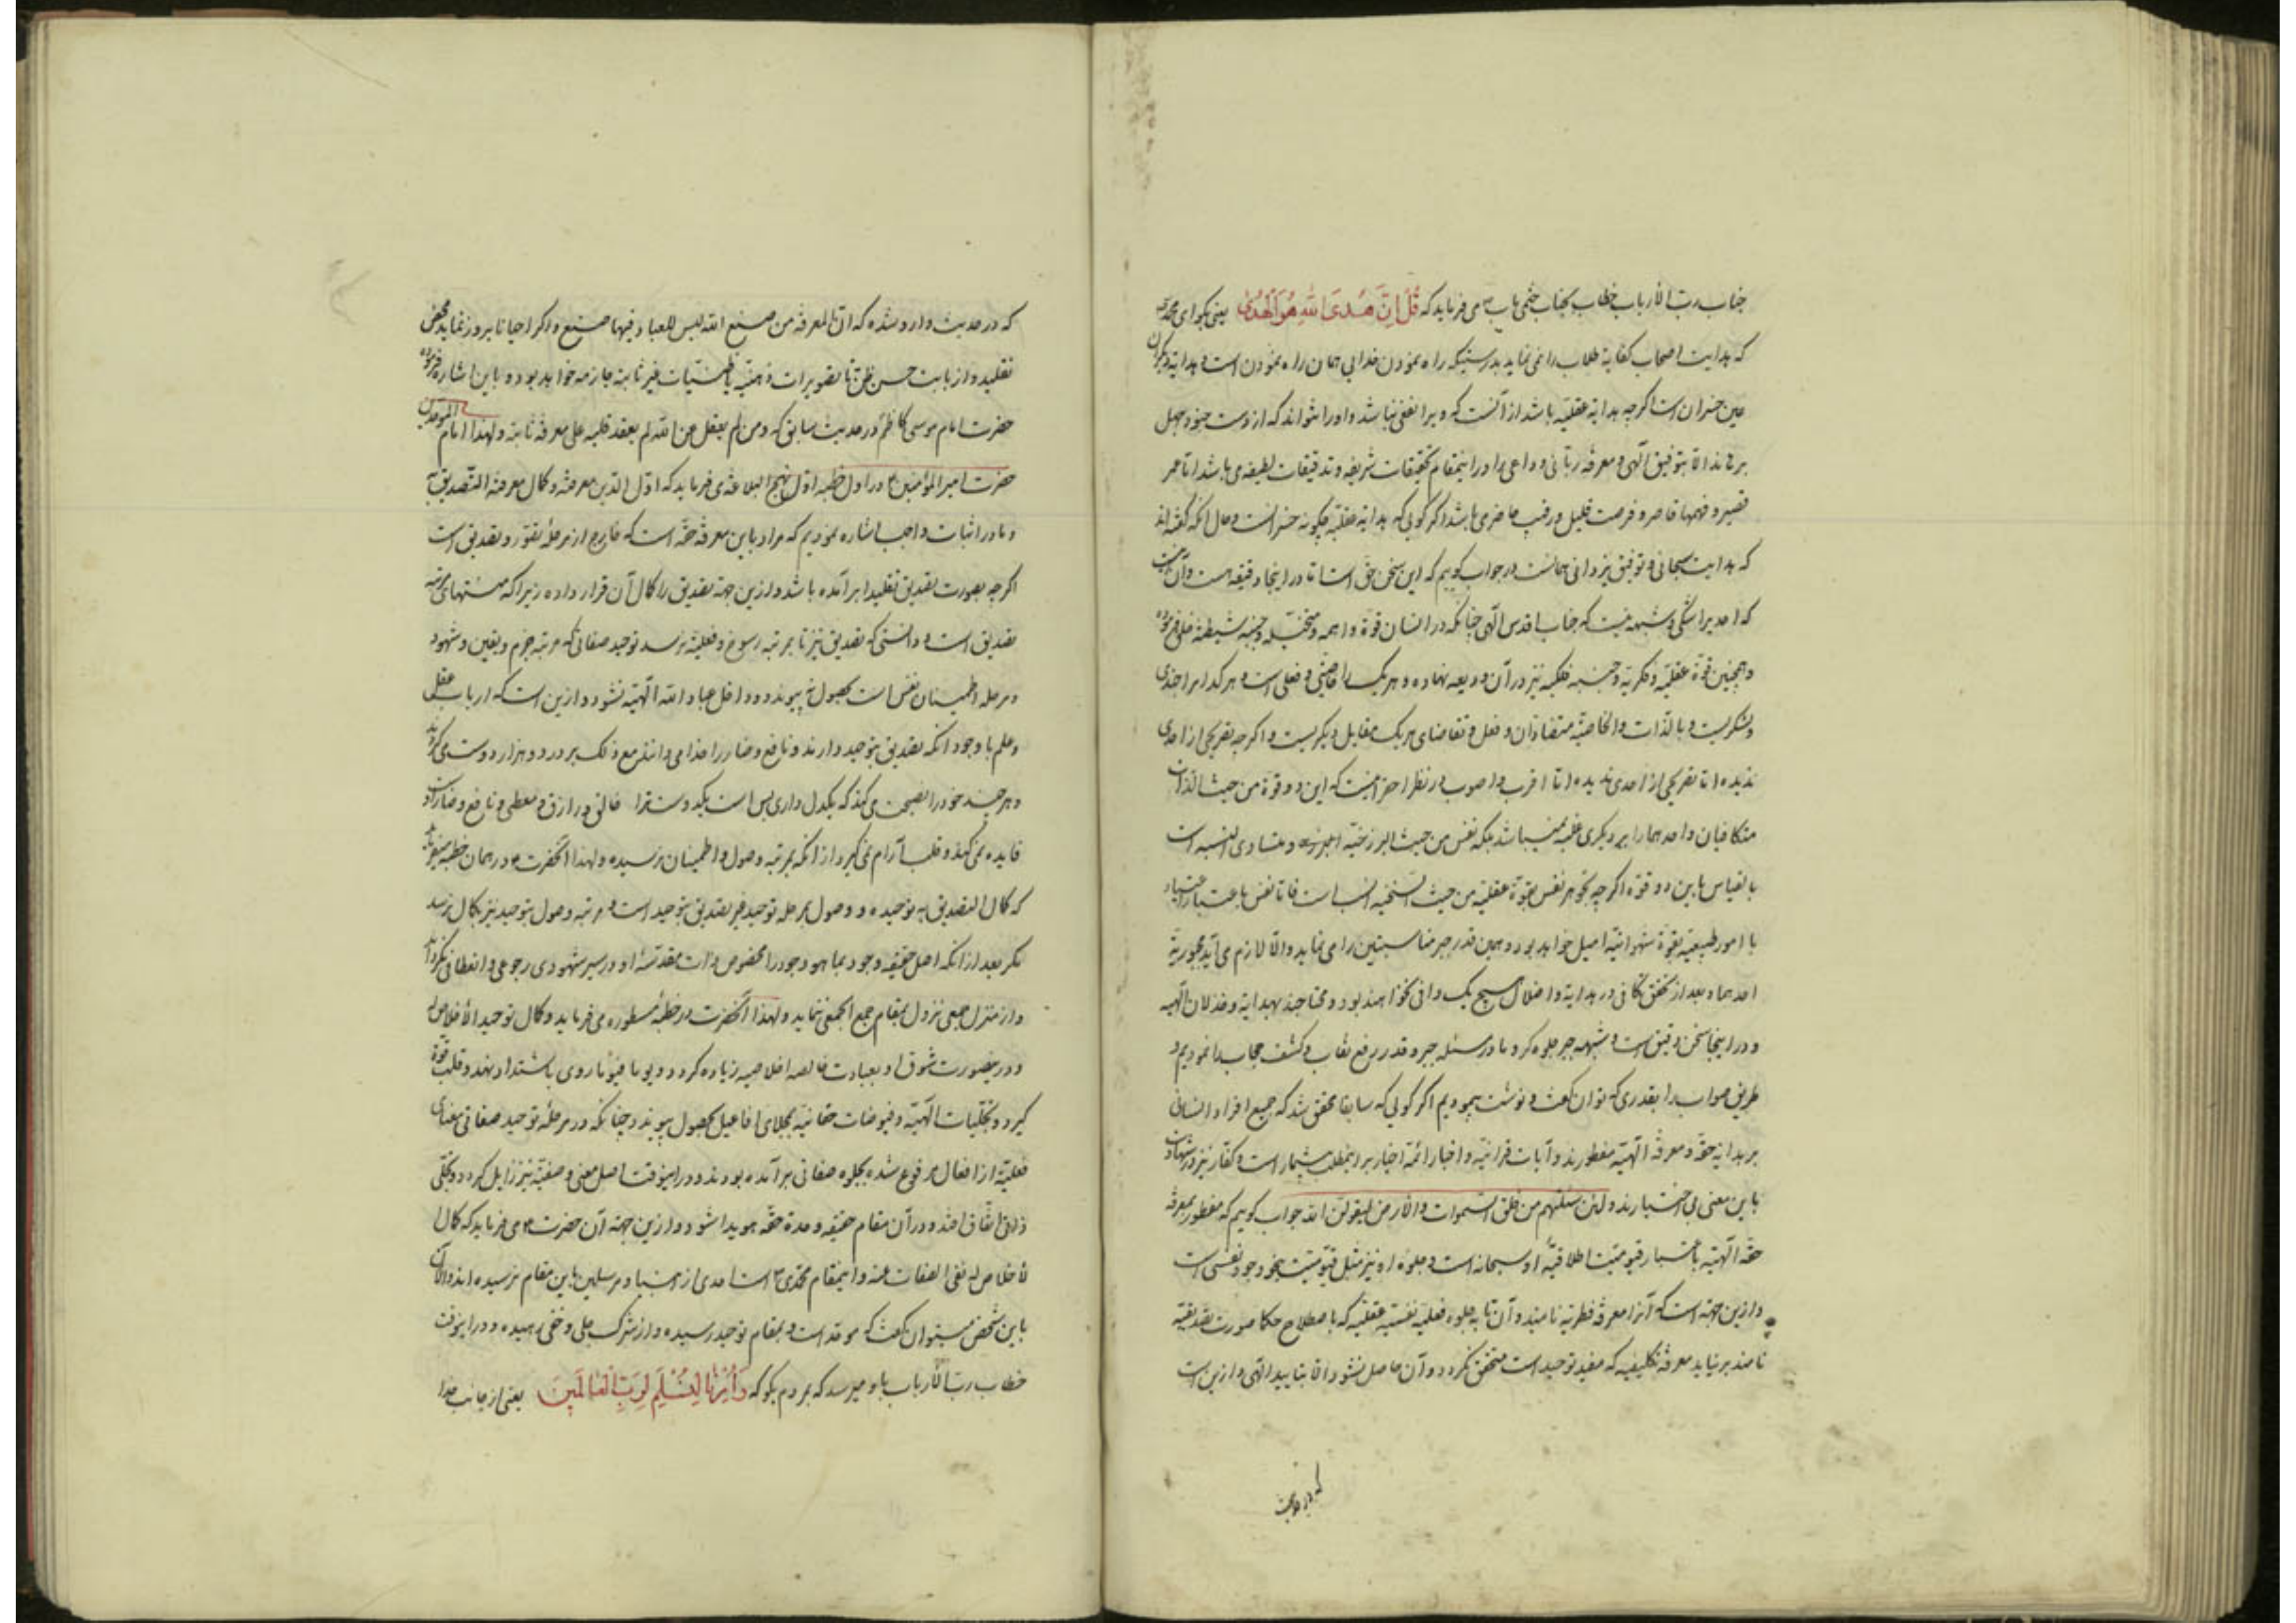 جناب رب الارباب خطاب بجناب ختمی مآب ص می فرماید که قُلْ اِنَّ هُدَی اللهِ هُوَ الْهُدیٰ یعنی بکو ای محمد
که هدایت اصحاب کفایة طلاب را نمی نماید بدرستیکه راه نمودن خدایی همان راه نمودن است و هدایة دیکران
عین خسران است اکرچه هدایة عقلیه باشد از آنست که ویرا نفعی نباشد و او را نتواند که از دست جنود جهل
برهاند الا بتوفیق الهی و معرفة ربانی و داعی را در اینمقام تحقیقات شریفه و تدقیقات لطیفه می باشد اما عمر
قصیر و فهمها قاصر و فرصت قلیل و رقیب حاضر می باشد اکر کوئی که هدایة عقلیه چکونه خسرانست و حال انکه کفته اند
که هدایت سبحانی و توفیق یزدانی همانست در جواب کوییم که این سخن حق است اما در اینجا دقیقه هست و آن اینست
که احدیرا شکی و شبهه نیست که جناب اقدس الهی چنانکه در انسان قوة واهمه و متخیله و جنبه شیطنة خلق فرموده
و همچنین قوة عقلیه و فکریه و جنبه ملکیه نیز در آن ودیعه نهاده و هر یک را خاصیتی و فعلی است و هر کدام را جندی
و لشکریست و بالذات و الخاصیة متضادان و فعل و تقاضای هر یک مقابل دیکریست و اکرچه تصریحی از احدی
ندیده اما تصریحی از احدی ندیده اما اقرب و اصوب در نظر احقر اینست که این دو قوة من حیث الذات
متکافیان و احدهما را بر دیکری غلبه نمیباشد بلکه نفس من حیث البرزخیة و متساوی النسبه است
بالقیاس باین دو قوه اکرچه جوهر نفس بقوة عقلیه من حیث السنخیه انسب است فاما نفس باعتبار اعتیاد
با امور طبیعیه بقوة شهوانیه امیل خواهد بود و همین قدر جبر مناسبتین را می نماید و الا لازم می آید مجبوریة
احدهما و بعد از تحقق تکافی در هدایة و اضلال هیچ یک وافی نخواهند بود و محتاجند بهدایة و خذلان الهیه
و در اینجا سخن دقیق است و شبهه جبر جلوه کر و ما در مسئله جبر و قدر رفع نقاب و کشف حجاب را نمودیم و
طریق صواب را بقدری که توان کفت و نوشت پیمودیم اکر کوئی که سابقا محقق شد که جمیع افراد انسانی
بر هدایة حقه و معرفة الهیه مفطورند و آیات قرانیه و اخبار ائمه اخیار بر اینمطلب بیشمار است و کفار نیز در شهادت
باین معنی بی اختیارند و لئن سئلتهم من خلق السموات و الارض لیقولن الله جواب کوییم که مفطور بمعرفة
حقه الهیه باعتبار قیومیت اطلاقیه او سبحانه است و جلوه او نیز مثل قیومیت بنحو وجود نفسی است
و ازین جهة است که آنرا معرفة فطریه نامیدند و آن تا به جلوه فعلیه نفسیه عقلیه که باصطلاح حکما صورت تصدیقیه
نامند بر نیاید معرفة تکلیفیه که مفید توحید است متحقق نکردد و آن حاصل نشود الا بتایید الهی و ازین است
که در حدیث
که در حدیث وارد شده که ان المعرفة من صنع الله لیس للعباد فیها صنع و اکر احیانا بروز نماید محض
تقلید و از بابت حسن ظن یا تصویرات ذهنیه یا ظنیات غیر ثابته جازمه خواهد بود و باین اشاره فرموده
حضرت امام موسی کاظم ع در حدیث سابق که و من لم یعقل عن الله لم یعقد قلبه علی معرفة ثابتة و لهذا امام الموحدین
حضرت امیر المؤمنین ع در اول خطبه اول نهج البلاغه می فرماید که اول الدین معرفته و کمال معرفته التصدیق به
و ما در اثبات واجب اشاره نمودیم که مراد باین معرفة حقه است که خارج از مرحلهٔ تصور و تصدیق است
اکرچه بصورت تصدیق تقلیدا بر آمده باشد و ازین جهة تصدیق را کمال آن قرار داده زیرا که منتهای مرتبه
تصدیق است و دانستی که تصدیق نیز تا بمرتبه رسوخ و فعلیة نرسد توحید صفاتی که مرتبه جزم و یقین و شهود
و مرحله اطمینان نفس است بحصول نپیوندد و داخل عباد الله الهیه نشود و ازین است که ارباب عقل
و علم با وجود انکه تصدیق بتوحید دارند و نافع و ضار را خدا می دانند مع ذلک بر در دو هزار دوست می کردند
و هر چند خود را نصیحت می کنند که یکدل داری بس است یکدوست ترا خالق و رازق و معطی و نافع و ضار است
فایده نمی کند و قلب آرام نمی کیرد از انکه بمرتبه وصول و اطمینان نرسیده و لهذا آنحضرت ع در همان خطبه میفرماید
که کمال التصدیق به توحیده و وصول بمرحله توحید غیر تصدیق بتوحید است و مرتبه وصول بتوحید نیز بکمال نرسد
مکر بعد از انکه اصل حقیقة وجود بما هو وجود را مخصوص ذات مقدسهٔ او در سیر شهودی رجوعی و انعطافی نکرداند
و از منزل جمعی نزول بمقام جمع الجمعی ننماید و لهذا آنحضرت در خطبهٔ مسطوره می فرماید و کمال توحیده الاخلاص له
و در ینصورت شوق او بعبادت خالصه اخلاصیه زیاده کردد و یوما فیوما روی باشتداد نهد و قلب قوة
کیرد و تجلیات الهیه و فیوضات حقانیه بمجلای افاعیل بحصول پیوندد چنانکه در مرحلهٔ توحید صفاتی معنای
فعلیة از افعال مرفوع شده بجلوه صفاتی بر آمده بودند و در اینوقت اصل معنی وصفیة نیز زایل کردد و تجلی
ذاتی اتفاق افتد و در آن مقام حقیقه وحدة حقه هویدا شود و ازین جهة آن حضرت ع می فرماید که کمال
الاخلاص له نفی الصفات عنه و اینمقام محمدی ص است احدی از انبیاء و مرسلین باین مقام نرسیده اند و الان
باین شخص میتوان کفت که موحد است و بمقام توحید رسیده و از شرک جلی و خفی رهیده و در اینوقت
خطاب رب الارباب باو میرسد که بمردم بکو که وَاُمِرْنا لِنُسْلِمَ لِرَبِّ الْعٰالَمینَ یعنی از جانب خدا